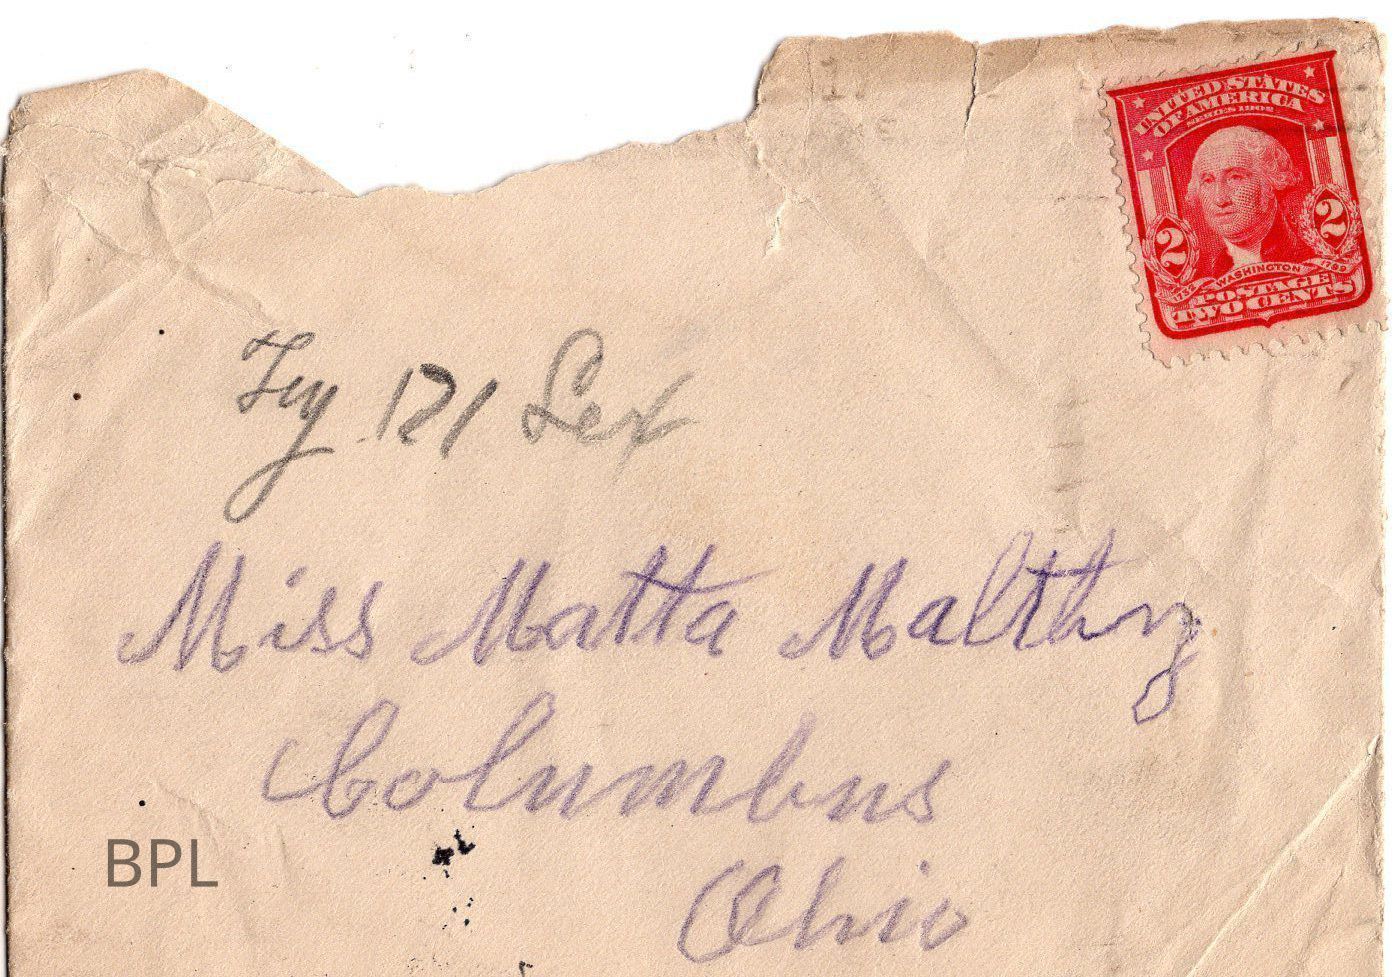 UNITED STATES
OF AMERICA
SERIES 1902
2 2
1732 WASHINGTON 1799
POSTAGE
TWO CENTS
Try 121 Lex
Miss Matta Malthy
Columbus
Ohio
BPL